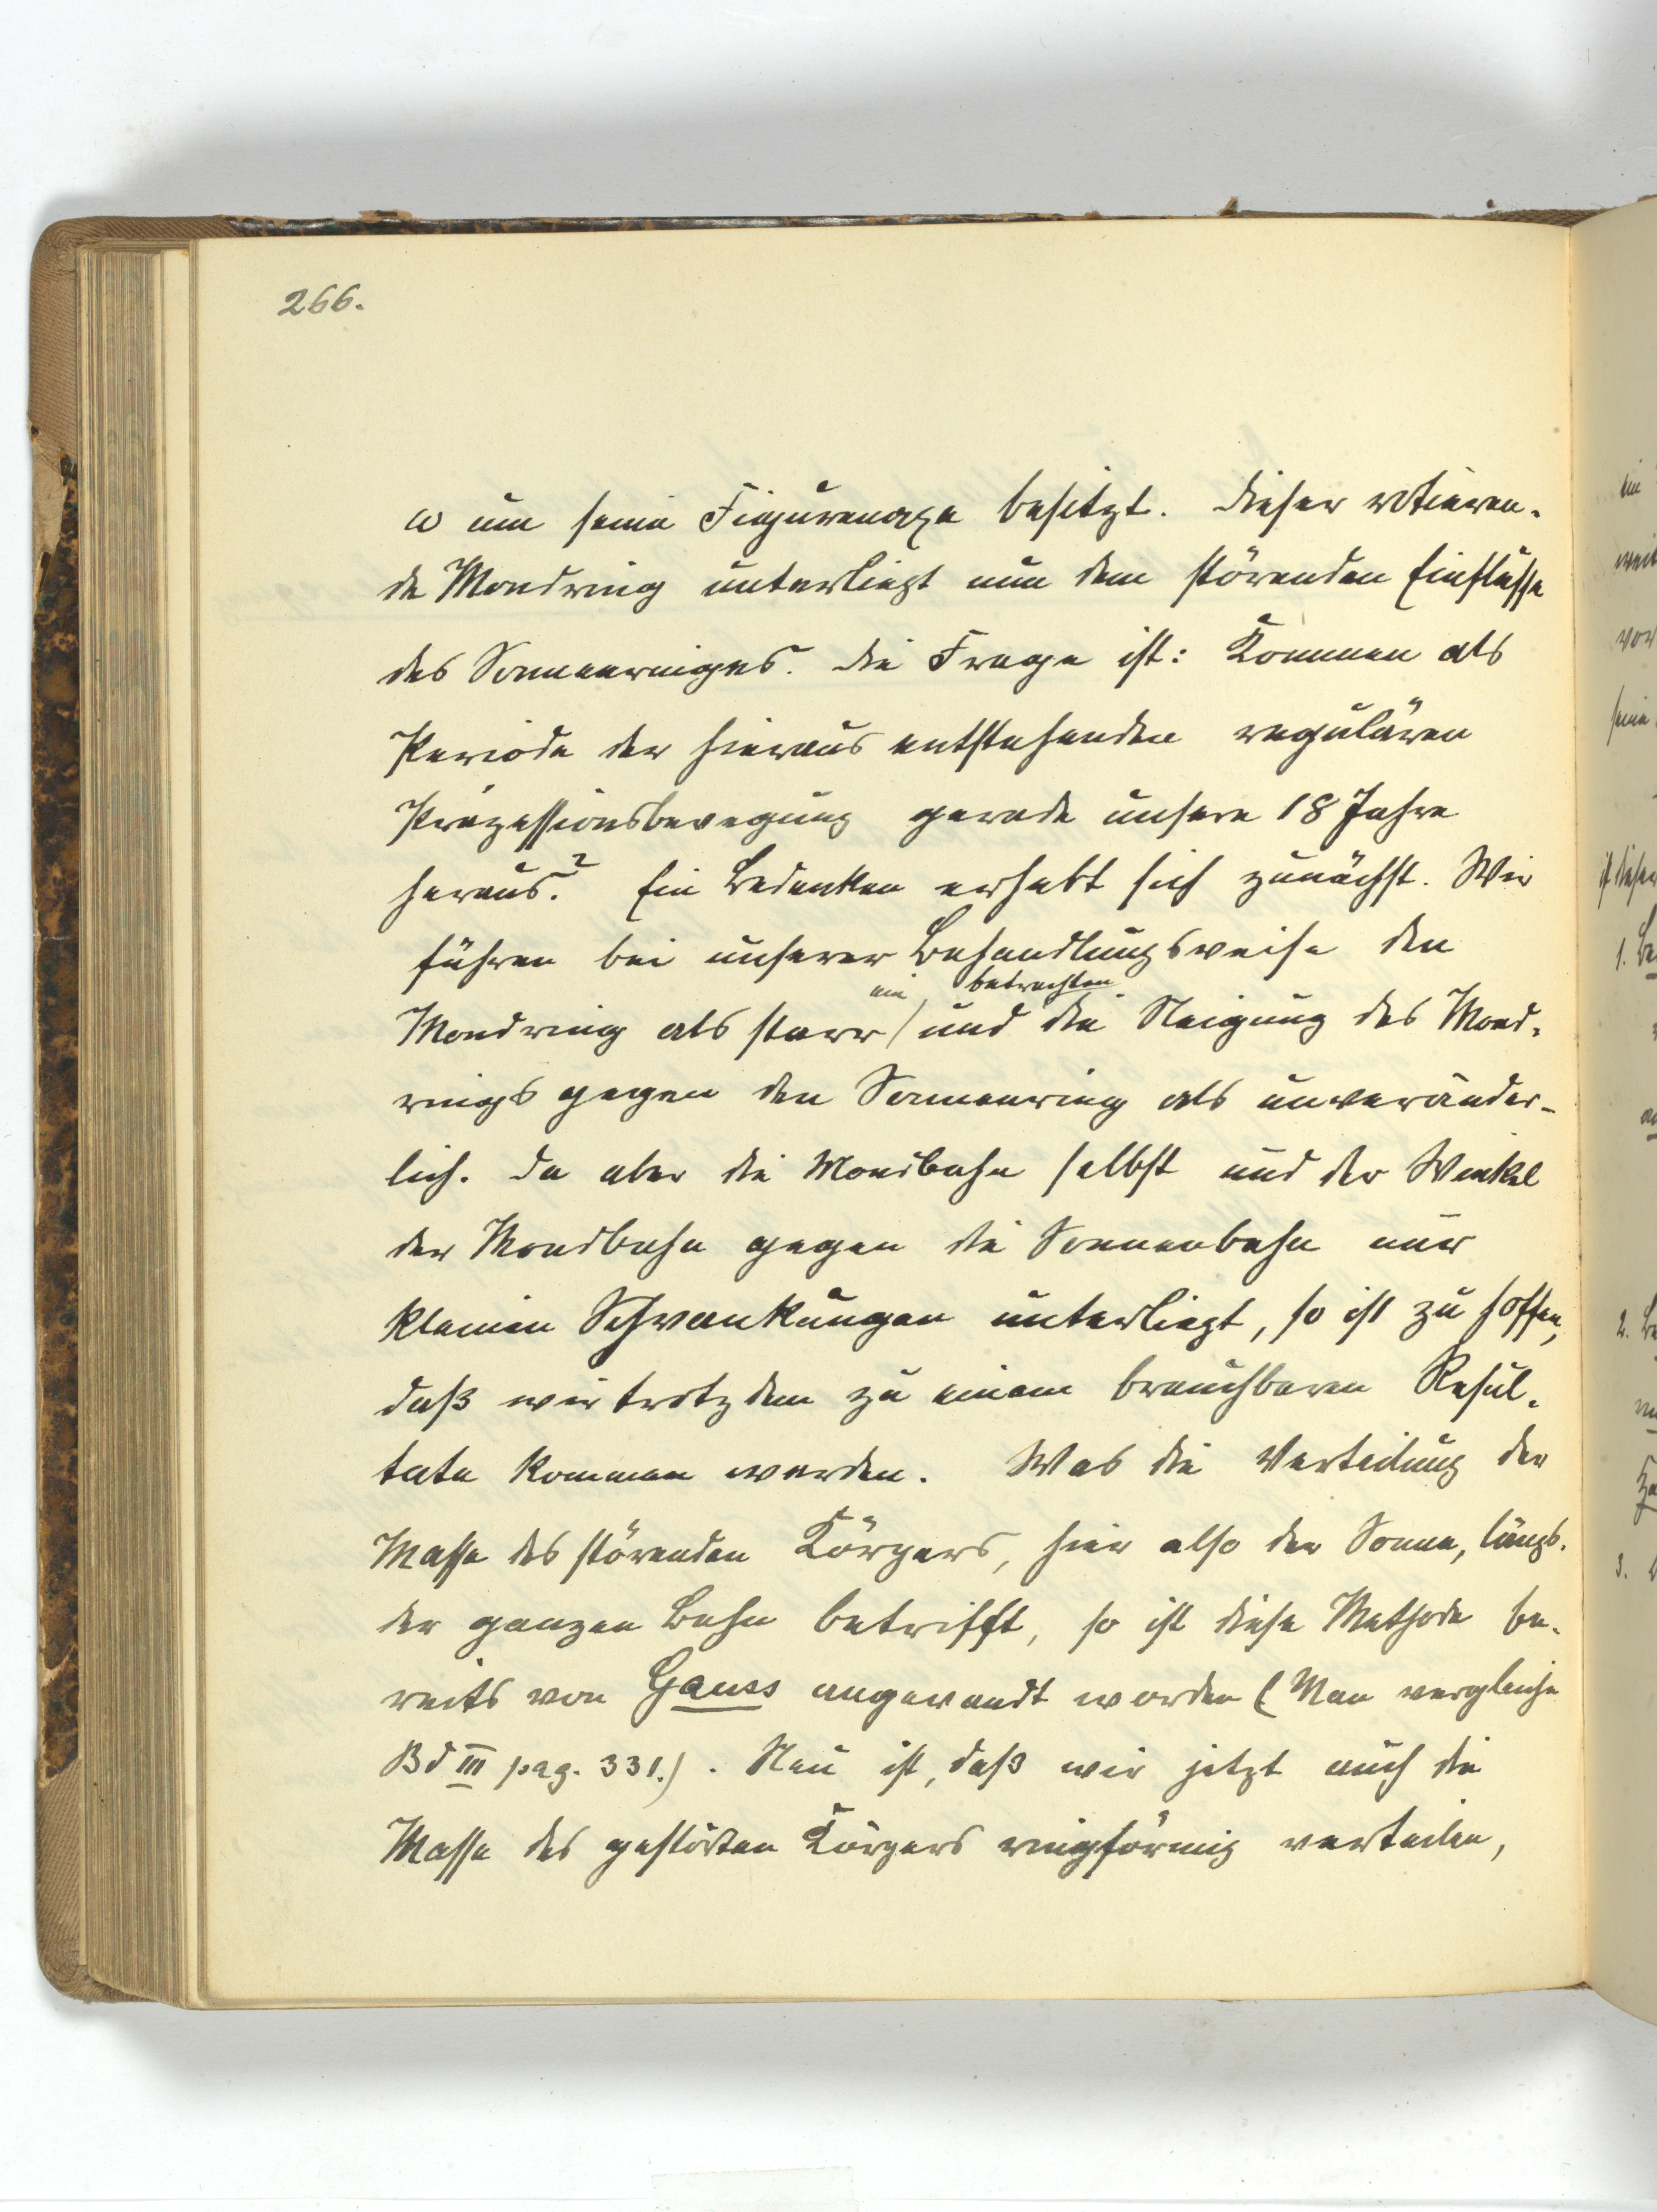 266.
ω um seine Figurenaxe besitzt. Dieser rotieren-
de Mondring unterliegt nun dem störenden Einflusse
des Sonnenringes. Die Frage ist: Kommen als
Periode der hieraus entstehenden regulären
Präzessionsbewegung gerade unsere 18 Jahre
heraus? Ein Bedenken erhebt sich zunächst. Wir
führen bei unserer Behandlungsweise den
ein, betrachten
Mondring als starr / und die Neigung des Mond-
rings gegen den Sonnenring als unveränder-
lich. Da aber die Mondbahn selbst und der Winkel
der Mondbahn gegen die Sonnenbahn nur
kleinen Schwankungen unterliegt, so ist zu hoffen,
daß wir trotzdem zu einem brauchbaren Resul-
tate kommen werden. Was die Verteilung der
Masse des störenden Körpers, hier also der Sonne, längs
der ganzen Bahn betrifft, so ist diese Methode be-
reits von Gauss angewandt worden (Man vergleiche
Bd III pag. 331.). Neu ist, daß wir jetzt auch die
Masse des gestörten Körpers ringförmig verteilen,